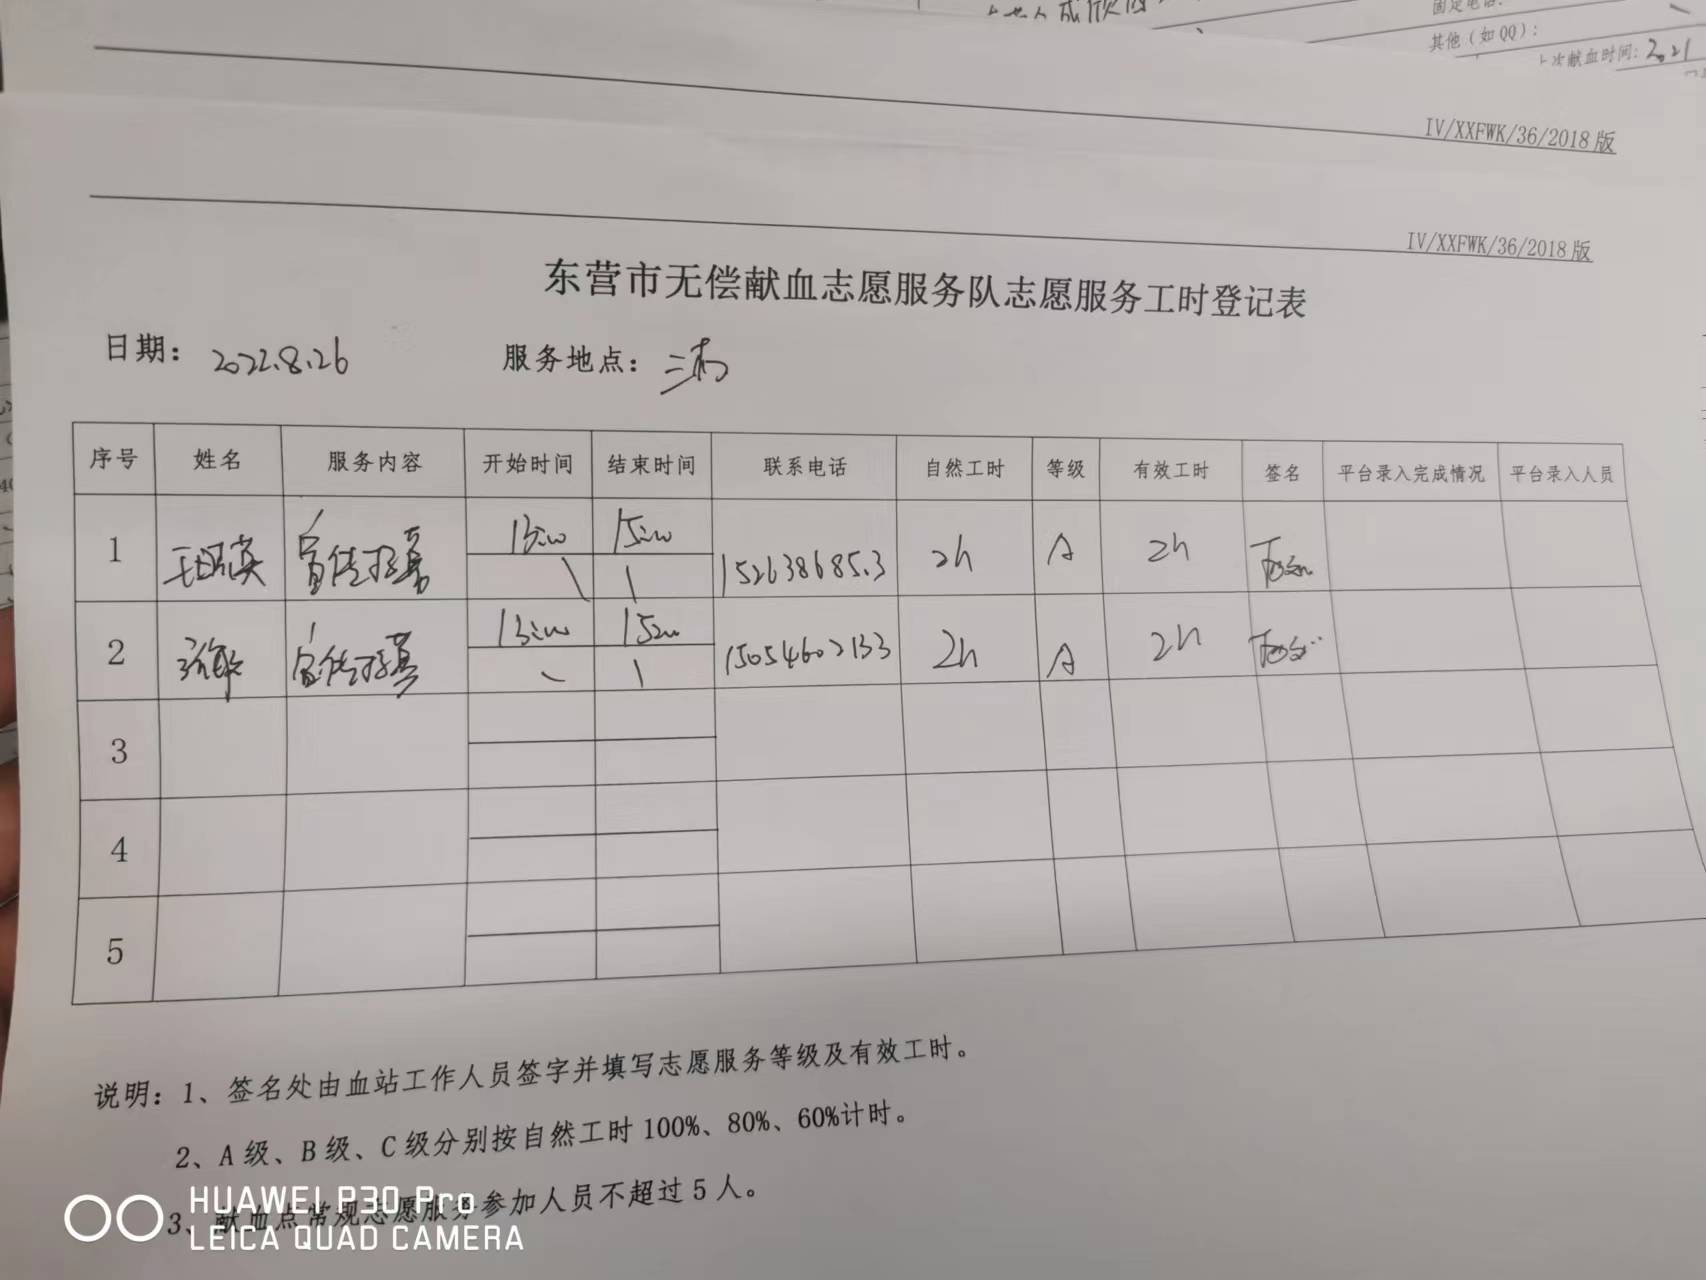 固定电话：
其他（如QQ）：
上次献血时间：2021
IV/XXFWK/36/2018版
IV/XXFWK/36/2018版
东营市无偿献血志愿服务队志愿服务工时登记表
日期： 2022.8.26 服务地点：
序号 姓名 服务内容 开始时间 结束时间 联系电话 自然工时 等级 有效工时 签名 平台录入完成情况 平台录入人员
1 宣传招募 13:00 15:00 2h A 2h
2 宣传招募 13:00 15:00 15054607133 2h A 2h
3
4
5
说明：1、签名处由血站工作人员签字并填写志愿服务等级及有效工时。
2、A级、B级、C级分别按自然工时100%、80%、60%计时。
3、献血点常规志愿服务参加人员不超过5人。
HUAWEI P30 Pro
LEICA QUAD CAMERA